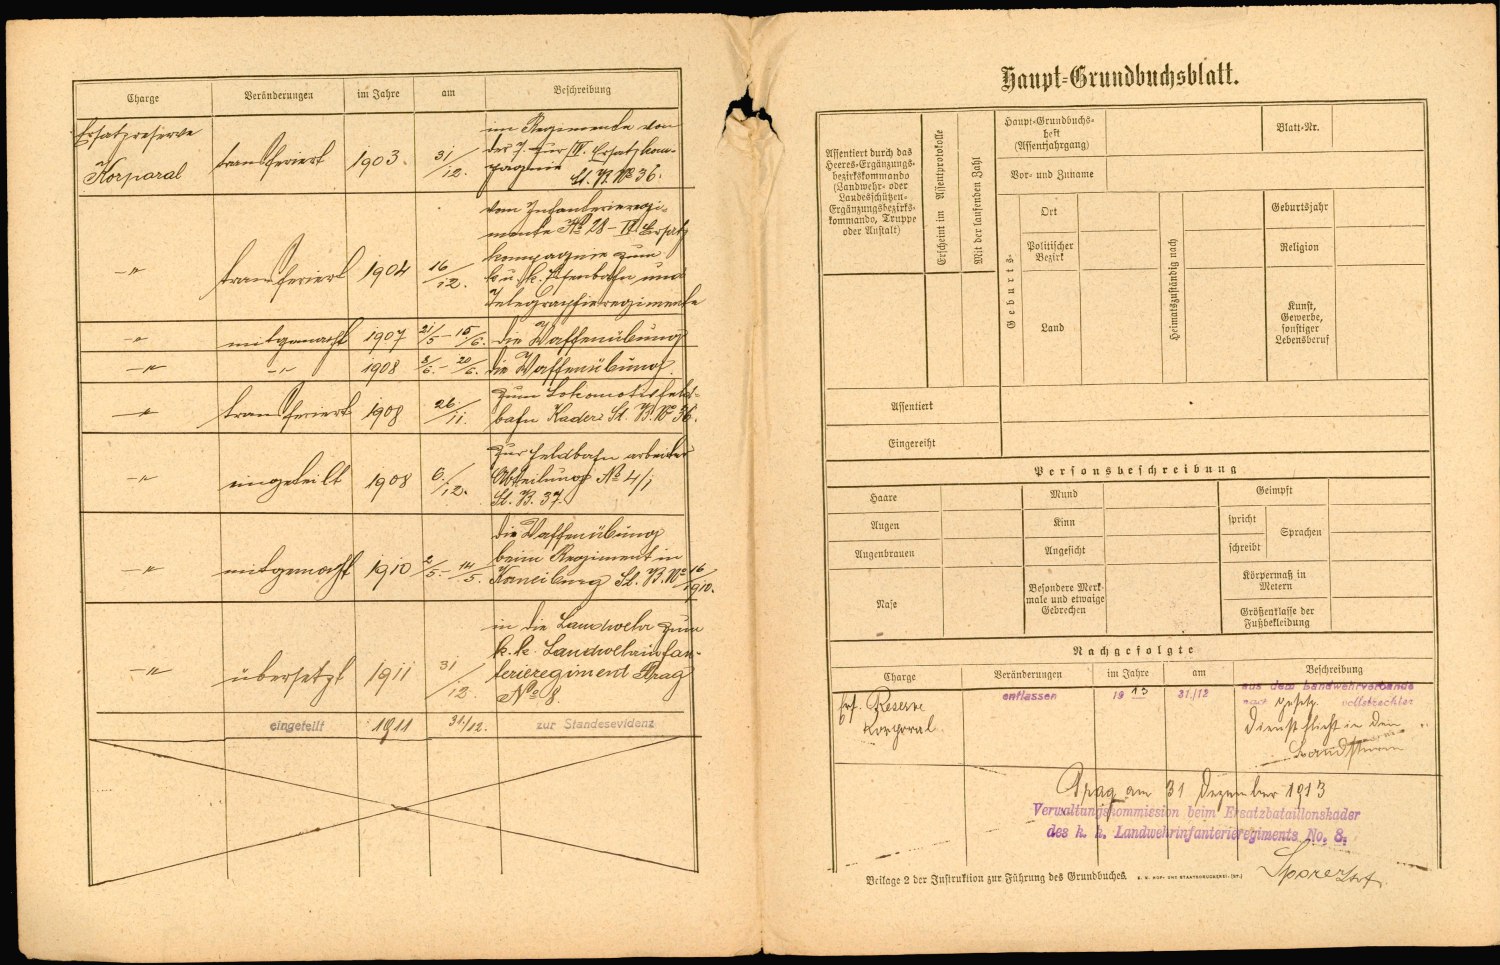 Charge
Veränderungen
im Jahre
am
Beschreibung
Ersatzreserve
Korporal
transferiert
1903.
31/12.
im Regimente von
der 7. zur IV. Ersatzkom-
pagnie
St. B. No 36.
—"—
transferiert
1904
16/12.
vom Infanterieregi-
mente No 28 – IV Ersatz
kompagnie zum
k. u. k. Eisenbahn und
Telegraphieregimente
—"—
mitgemacht
1907
21/5 – 15/6.
die Waffenübung
—"—
—"—
1908
8/6. – 20/6.
die Waffenübung.
—"—
transferiert
1908
26./11.
zum Lokomotivfeld-
bahn Kader St. B. No 36.
—"—
eingeteilt
1908
6./12.
zur Feldbahn arbeiter
Abteilung No 4/I
St. B. 37.
—"—
mitgemacht
1910
2/5. – 14/5.
die Waffenübung
beim Regiment in
Korneuburg St. B. No 16/1910.
—"—
übersetzt
1911
31/12.
in die Landwehr zum
k. k. Landwehrinfan-
terieregiment Prag
No 8.
eingeteilt
1911
31./12.
zur Standesevidenz
Haupt-Grundbuchsblatt.
Assentiert durch das
Heeres-Ergänzungs-
bezirkskommando
(Landwehr- oder
Landesschützen-
Ergänzungsbezirks-
kommando, Truppe
oder Anstalt)
Erscheint im Assentprotokolle
Mit der laufenden Zahl
Haupt-Grundbuchs-
heft
(Assentjahrgang)
Blatt-Nr.
Vor- und Zuname
Geburts-
Ort
Politischer
Bezirk
Land
Heimatszuständig nach
Geburtsjahr
Religion
Kunst,
Gewerbe,
sonstiger
Lebensberuf
Assentiert
Eingereiht
Personsbeschreibung
Haare
Mund
Geimpft
Augen
Kinn
spricht
Sprachen
Augenbrauen
Angesicht
schreibt
Nase
Besondere Merk-
male und etwaige
Gebrechen
Körpermaß in
Metern
Größenklasse der
Fußbekleidung
Nachgefolgte
Charge
Veränderungen
im Jahre
am
Beschreibung
Ers. Reserve
Korporal
entlassen
1913
31./12
aus dem Landwehrverbande
nach gesetz. vollstreckter
Dienstpflicht in den
Landsturm
Prag am 31 Dezember 1913
Verwaltungskommission beim Ersatzbataillonskader
des k. k. Landwehrinfanterieregiments No. 8.
Beilage 2 der Instruktion zur Führung des Grundbuches.
K. K. HOF- UND STAATSDRUCKEREI. (ST.)